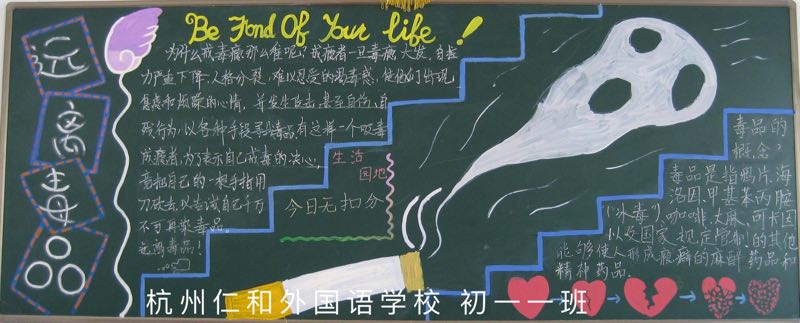 远
离
毒
品
Be Fond Of Your life!
为什么戒毒瘾那么难呢?成瘾者一旦毒瘾大发,自控
力严重下降,人格分裂,难以忍受的渴毒感,使他们出现
焦虑和烦躁的心情,并发生攻击甚至自伤、自
残行为,以各种手段寻找毒品有这样一个吸毒
成瘾者,为了表示自己戒毒的决心,
竟把自己的一根手指用
刀砍去,以告诫自己千万
不可再聚毒品。
远离毒品!
生活
园地
今日无扣分
毒品的
概念?
毒品是指鸦片,海
洛因,甲基苯丙胺
(冰毒),咖啡,大麻,可卡因
以及国家规定管制的其他
能够使人形成瘾癖的麻醉药品和
精神药品.
杭州仁和外国语学校 初一一班